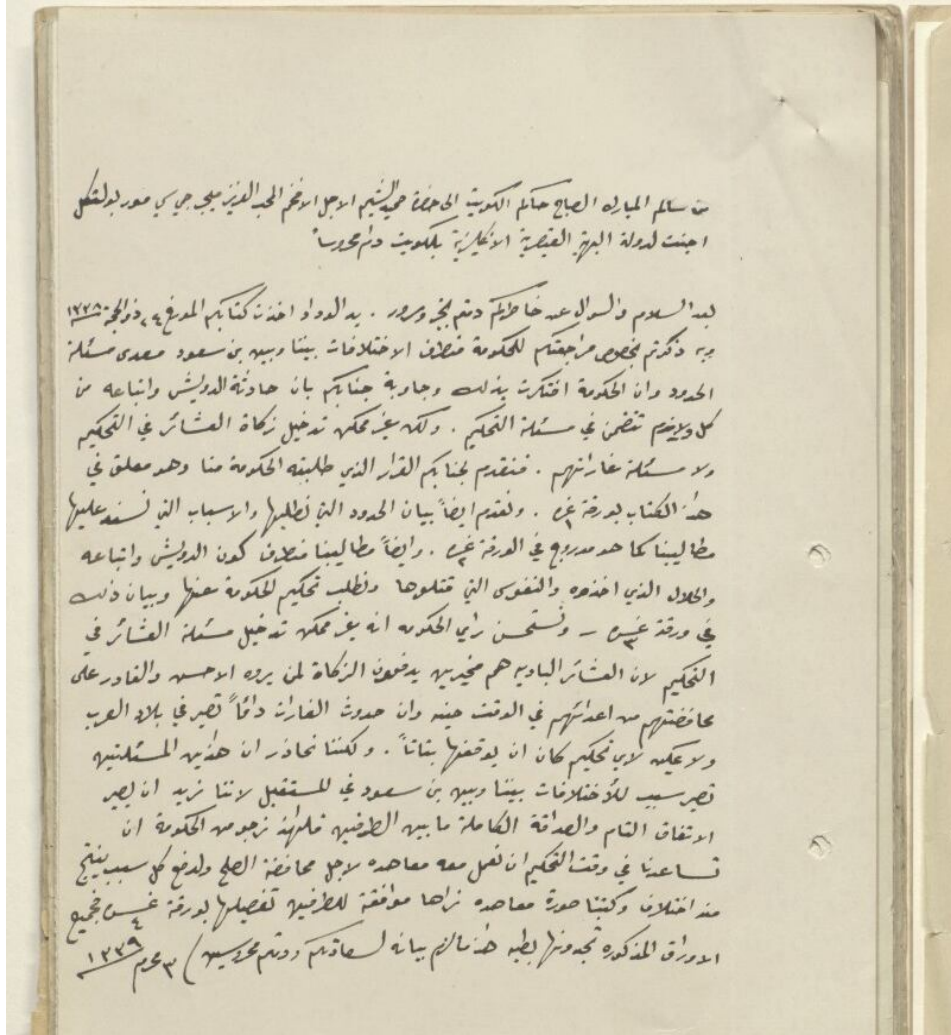 من سالم المبارك الصباح حاكم الكويت الى حضرة حميد الشيم الاجل الافخم المحب العزيز ميجر جي سي مور بولتكل
اجنت لدولة البهية القيصرية الانكليزية بالكويت دام محروساً
بعد السلام والسوال عن خاطركم دمتم بخير وسرور . بيد الوداد اخذت كتابكم المورخ ٢٤ ذو الحجة ١٣٣٨
وبه ذكرتم بخصوص مراجعتكم للحكومة منطرف الاختلافات بيننا وبين بن سعود معدى مسئلة
الحدود وان الحكومة افتكرت بذلك وجاوبة جنابكم بان حادثة الدويش واتباعه من
كل ولابد تتضمن في مسئلة التحكيم . ولكن غير ممكن تدخيل زكاة العشائر في التحكيم
ولا مسئلة غاراتهم . فنقدم لجنابكم القرار الذي طلبته الحكومة منا وهو معلق في
هذا الكتاب بورقة نمره ١ . ونقدم ايضاً بيان الحدود التي نطلبها والاسباب التي نسند عليها
مطاليبنا كما هو مدروج في الورقة نمره ٢ . وايضاً مطاليبنا منطرف كون الدويش واتباعه
والحلال الذي اخذوه والنفوس التي قتلوها ونطلب تحكيم الحكومة عنها وبيان ذلك
في ورقة نمره ٣ – ونستحسن راي الحكومه انه غير ممكن تدخيل مسئلة العشائر في
التحكيم لان العشائر الباديه هم مخيرين يدفعون الزكاة لمن يروه الاحسن والقادر على
محافضتهم من اعدائهم في الوقت حينه وان حدوث الغارات دائماً تصير في بلاد العرب
ولا يمكن لاي تحكيم كان ان يوقفها بتاتاً . ولكننا نحاذر ان هذين المسئلتين
تصير سبب للأختلافات بيننا وبين بن سعود في المستقبل لاننا نريد ان يصير
الاتفاق التام والصداقة الكاملة ما بين الطرفين فلهذا نرجو من الحكومة ان
تساعدنا في وقت التحكيم ان نعمل معه معاهده لاجل محافضة الصلح ولدفع كل سبب ينتج
منه اختلاف وكتبنا صورة معاهده نراها موافقة للطرفين تفصيلها بورقة نمره ٤ فجميع
الاوراق المذكوره تجدونها بطيه هذا ما لزم بيانه لسعادتكم ودمتم محروسين ) ٣ محرم ١٣٣٩